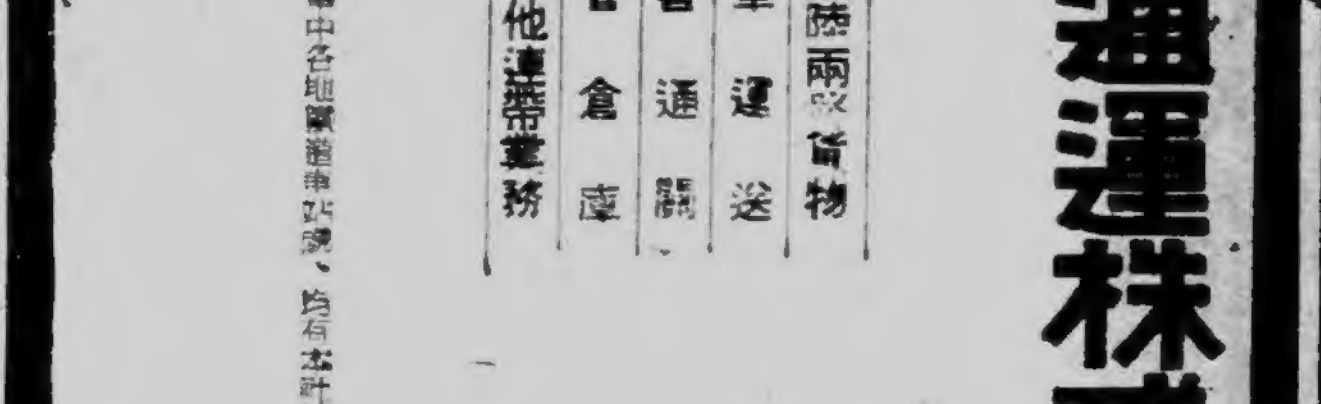 通運株
陸兩路貨物
運送
通關
倉庫
他連帶業務
中各地鐵道車站碼、均有本社